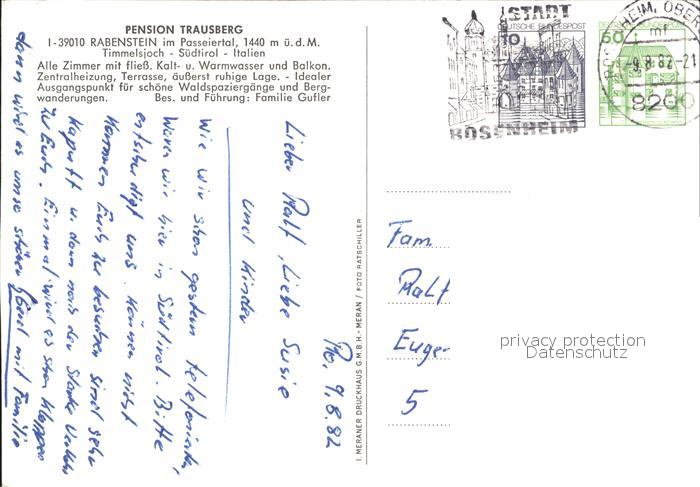 PENSION TRAUSBERG
I-39010 RABENSTEIN im Passeiertal, 1440 m ü.d.M.
Timmelsjoch - Südtirol - Italien
Alle Zimmer mit fließ. Kalt- u. Warmwasser und Balkon.
Zentralheizung, Terrasse, äußerst ruhige Lage. - Idealer
Ausgangspunkt für schöne Waldspaziergänge und Berg-
wanderungen. Bes. und Führung: Familie Gufler
Ro, 9.8.82
Lieber Ralf, Liebe Susie
und Kinder
Wie wir schon gestern telefoniert,
waren wir hier in Südtirol. Bitte
entschuldigt uns. Können nicht
kommen Euch zu besuchen sind sehr
kaputt u. dann noch der Starke Verkehr
zu Euch. Einmal wird es schon klappen
dann wird es umso schöner Gerd mit Familie
I. MERANER DRUCKHAUS G.M.B.H. - MERAN / FOTO RATSCHILLER
STADT
ROSENHEIM
10
DEUTSCHE BUNDESPOST
50
ROSENHEIM, OBER
mf
-9.8.82-21
8200
Fam
Ralf
Euge
5
privacy protection
Datenschutz